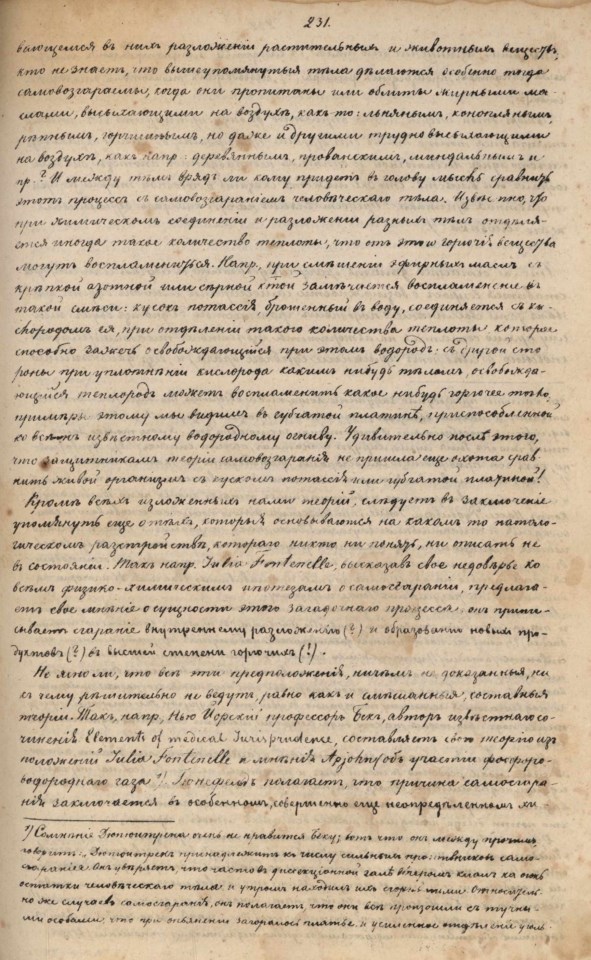 231.
вающемся въ нихъ разложеніи растительныхъ и животныхъ веществъ,
кто не знаетъ, что вышеупомянутыя тѣла дѣлаются особенно тогда
самовозгараемы, когда они пропитаны или облиты жирными ма-
слами, высыхающими на воздухѣ, какъ то: льнянымъ, конопляннымъ,
рѣпнымъ, горчичнымъ, но даже и другими трудно высыхающими
на воздухѣ, какъ напр: деревяннымъ, прованскимъ, миндальнымъ и
пр.? И между тѣмъ врядъ ли кому придетъ въ голову мысль сравнить
этотъ процессъ съ самовозгараніемъ человѣческаго тѣла. Извѣстно, что
при химическомъ соединеніи и разложеніи разныхъ тѣлъ отдѣля-
ется иногда такое количество теплоты, что отъ этого горючія вещества
могутъ воспламениться. Напр., при смѣшеніи эфирныхъ маслъ съ
крѣпкой азотной или сѣрной к-той замѣчается воспламененіе
такой смѣси: кусокъ потассія, брошенный въ воду, соединяется съ ки-
слородомъ ея, при отдѣленіи такого количества теплоты, которое
способно зажечь освобождающійся при этомъ водородъ: съ другой сто
роны при уплотнѣніи кислорода какимъ нибудь тѣломъ, освобожда-
ющійся теплородъ можетъ воспламенить какое нибудь горючее тѣло,
примѣръ этому мы видимъ въ губчатой платинѣ, приспособленной
ко всѣмъ извѣстному водородному огниву. Удивительно послѣ этого,
что защитникамъ теоріи самовозгаранія не пришла еще охота срав
нить живой организмъ съ кускомъ потассія или губчатой платиной!
Кромѣ всѣхъ изложенныхъ нами теорій, слѣдуетъ въ заключеніе
упомянуть еще о тѣхъ, которыя основываются на какомъ то патоло-
гическомъ разстройствѣ, котораго никто ни понять, ни описать не
въ состояніи. Такъ напр. Julia Fontenelle, высказавъ свое недовѣрье ко
всѣмъ физико-химическимъ ипотезамъ о самосгараніи, предлага-
етъ свое мнѣніе о сущности этого загадочнаго процесса: онъ припи-
сываетъ сгараніе внутреннему разложенію (?) и образованію новыхъ про-
дуктовъ (?) въ высшей степени горючихъ (?).
Не ясно ли, что всѣ эти предположенія, ничѣмъ не доказанныя, ни
къ чему рѣшительно не ведутъ, равно какъ и смѣшанныя, составныя
теоріи. Такъ, напр, Нью Іорскій профессоръ Бекъ, авторъ извѣстнаго со-
чиненія Elements of medical Jurisprudence, составляетъ свою теорію изъ
положеній Julia Fontenelle и мнѣнія Apjohn'а объ участіи фосфоро-
водороднаго газа ¹). полагаетъ, что причина самосгара-
нія заключается въ особенномъ, совершенно еще неопредѣленномъ
¹) Сомнѣніе Дюпюитрена очень не нравится Беку; вотъ что онъ между прочимъ
говоритъ: „Дюпюитренъ принадлежитъ къ числу сильныхъ противниковъ само-
сгаранія. Онъ увѣряетъ, что часто въ диссекціонной залѣ вечеромъ клалъ на огонь
остатки человѣческаго тѣла и утромъ находилъ ихъ сгорѣвшими. Относитель-
но же случаевъ самосгаранія, онъ полагаетъ, что они всѣ произошли съ тучны-
ми особами, что при опьяненіи загоралось платье и усиленное отдѣленіе